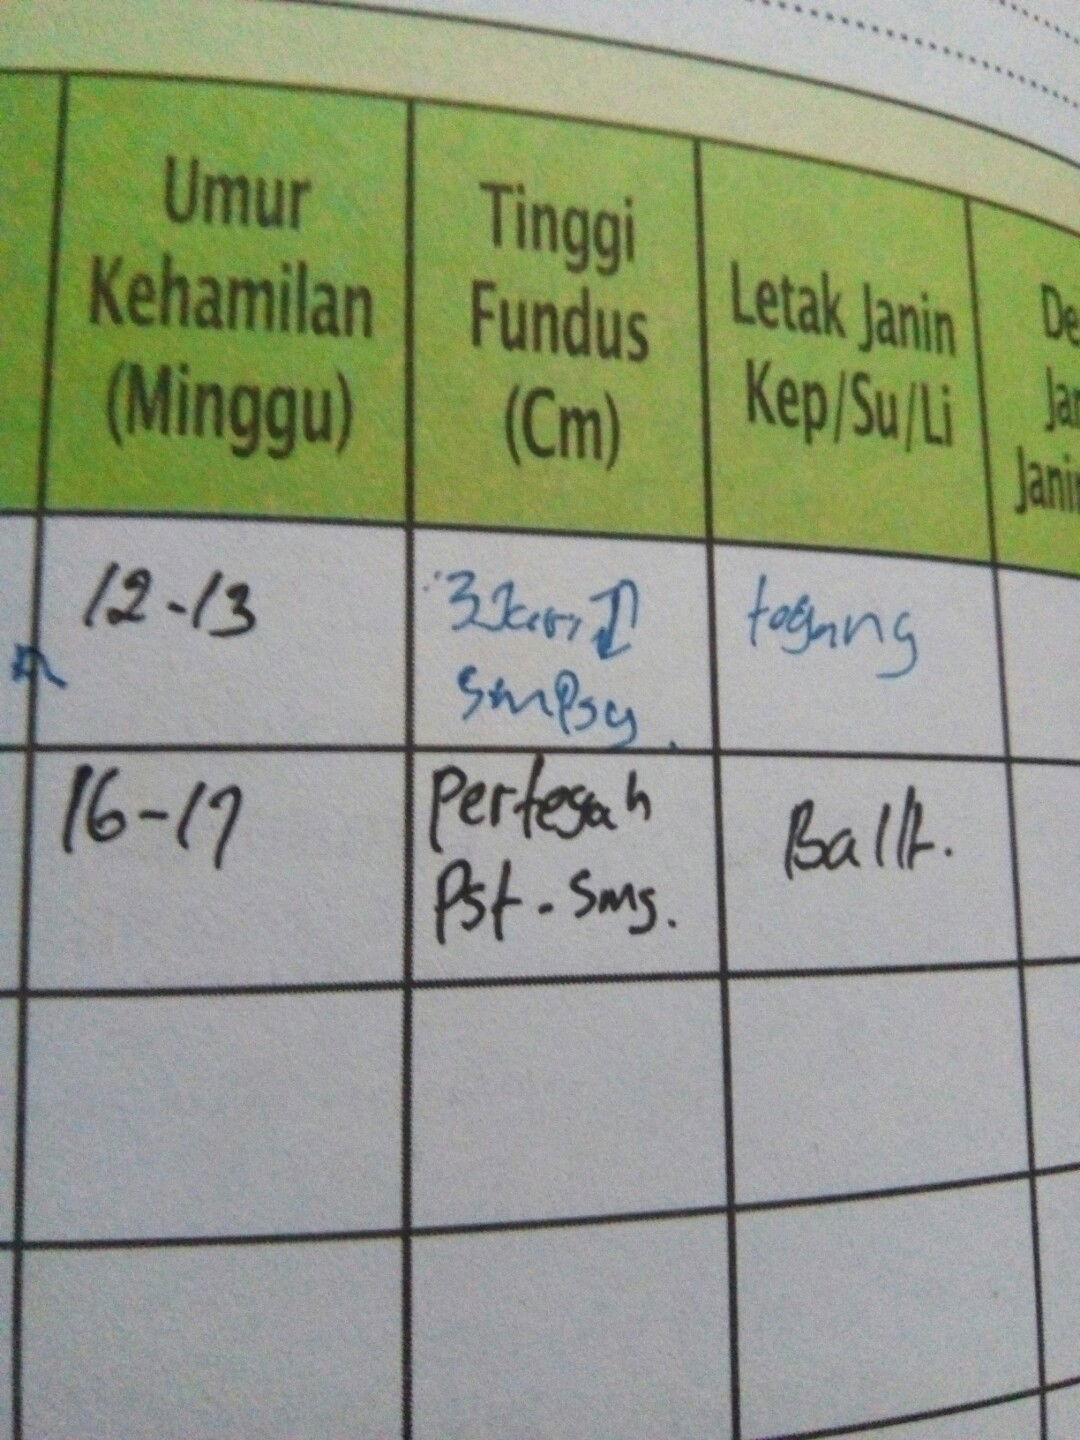 Umur
Kehamilan
(Minggu)
Tinggi
Fundus
(Cm)
Letak Janin
Kep/Su/Li
De
Jan
Janin
12-13
16-17
Pertegah
Pst - Sms.
Ball+.